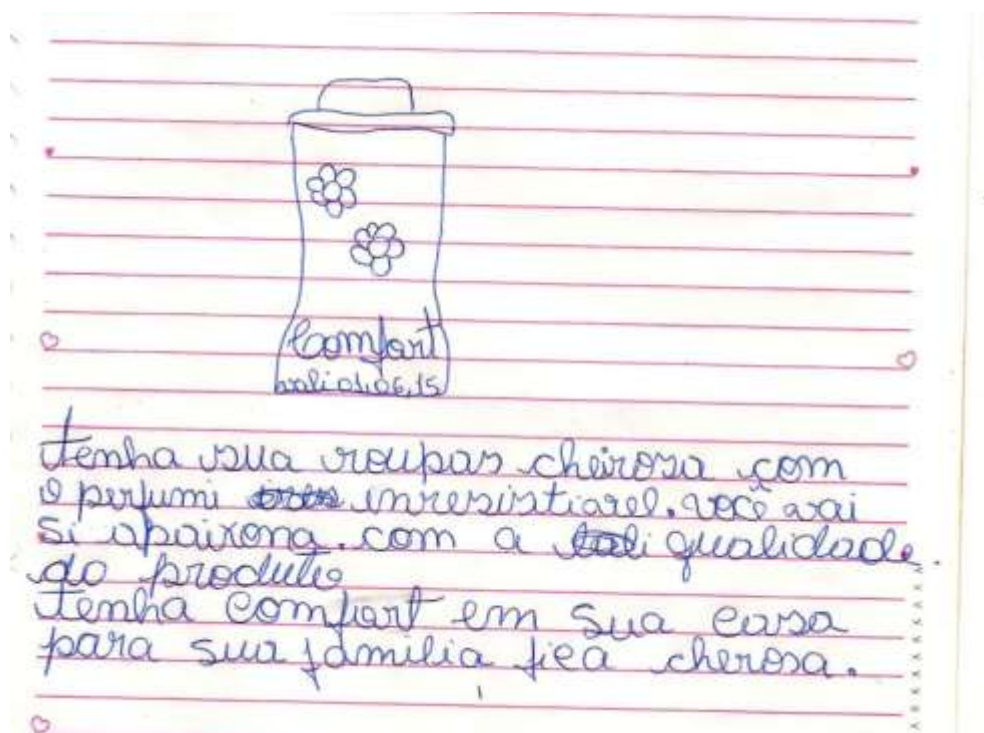 Comfort
vali 01,06,15
Tenha sua roupas cheirosa com
o perfumi inresistiavel. você vai
si apaixona. com a qualidade.
do produtio
Tenha Comfort em Sua casa
para sua familia fica cherosa.